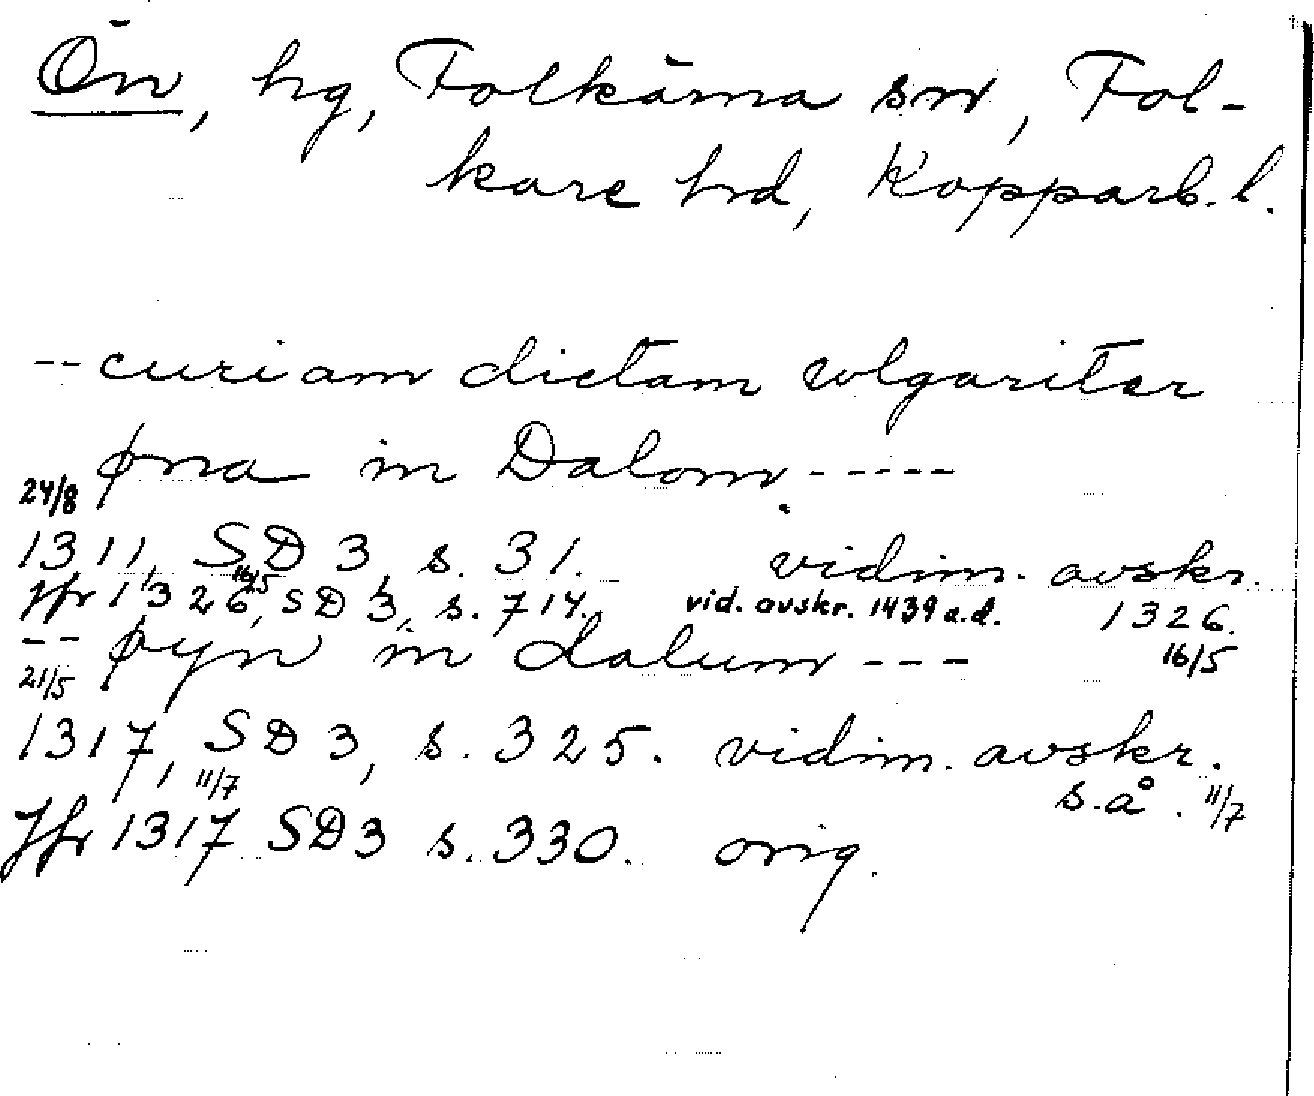 Ön, hg, Folkärna sn, Fol-
kare hrd, Kopparb. l.
-- curiam dictam wlgariter
øna in Dalom. -----
24/8
1311, SD 3, s. 31. vidim. avskr.
1326. 16/5
Jfr 1326, 16/5 SD 3, s. 714. vid. avskr. 1439 a.d.
-- øyn in dalum ---
21/5
1317, SD 3, s. 325. vidim. avskr.
s.å. 11/7
Jfr 1317 11/7 SD 3 s. 330. orig.